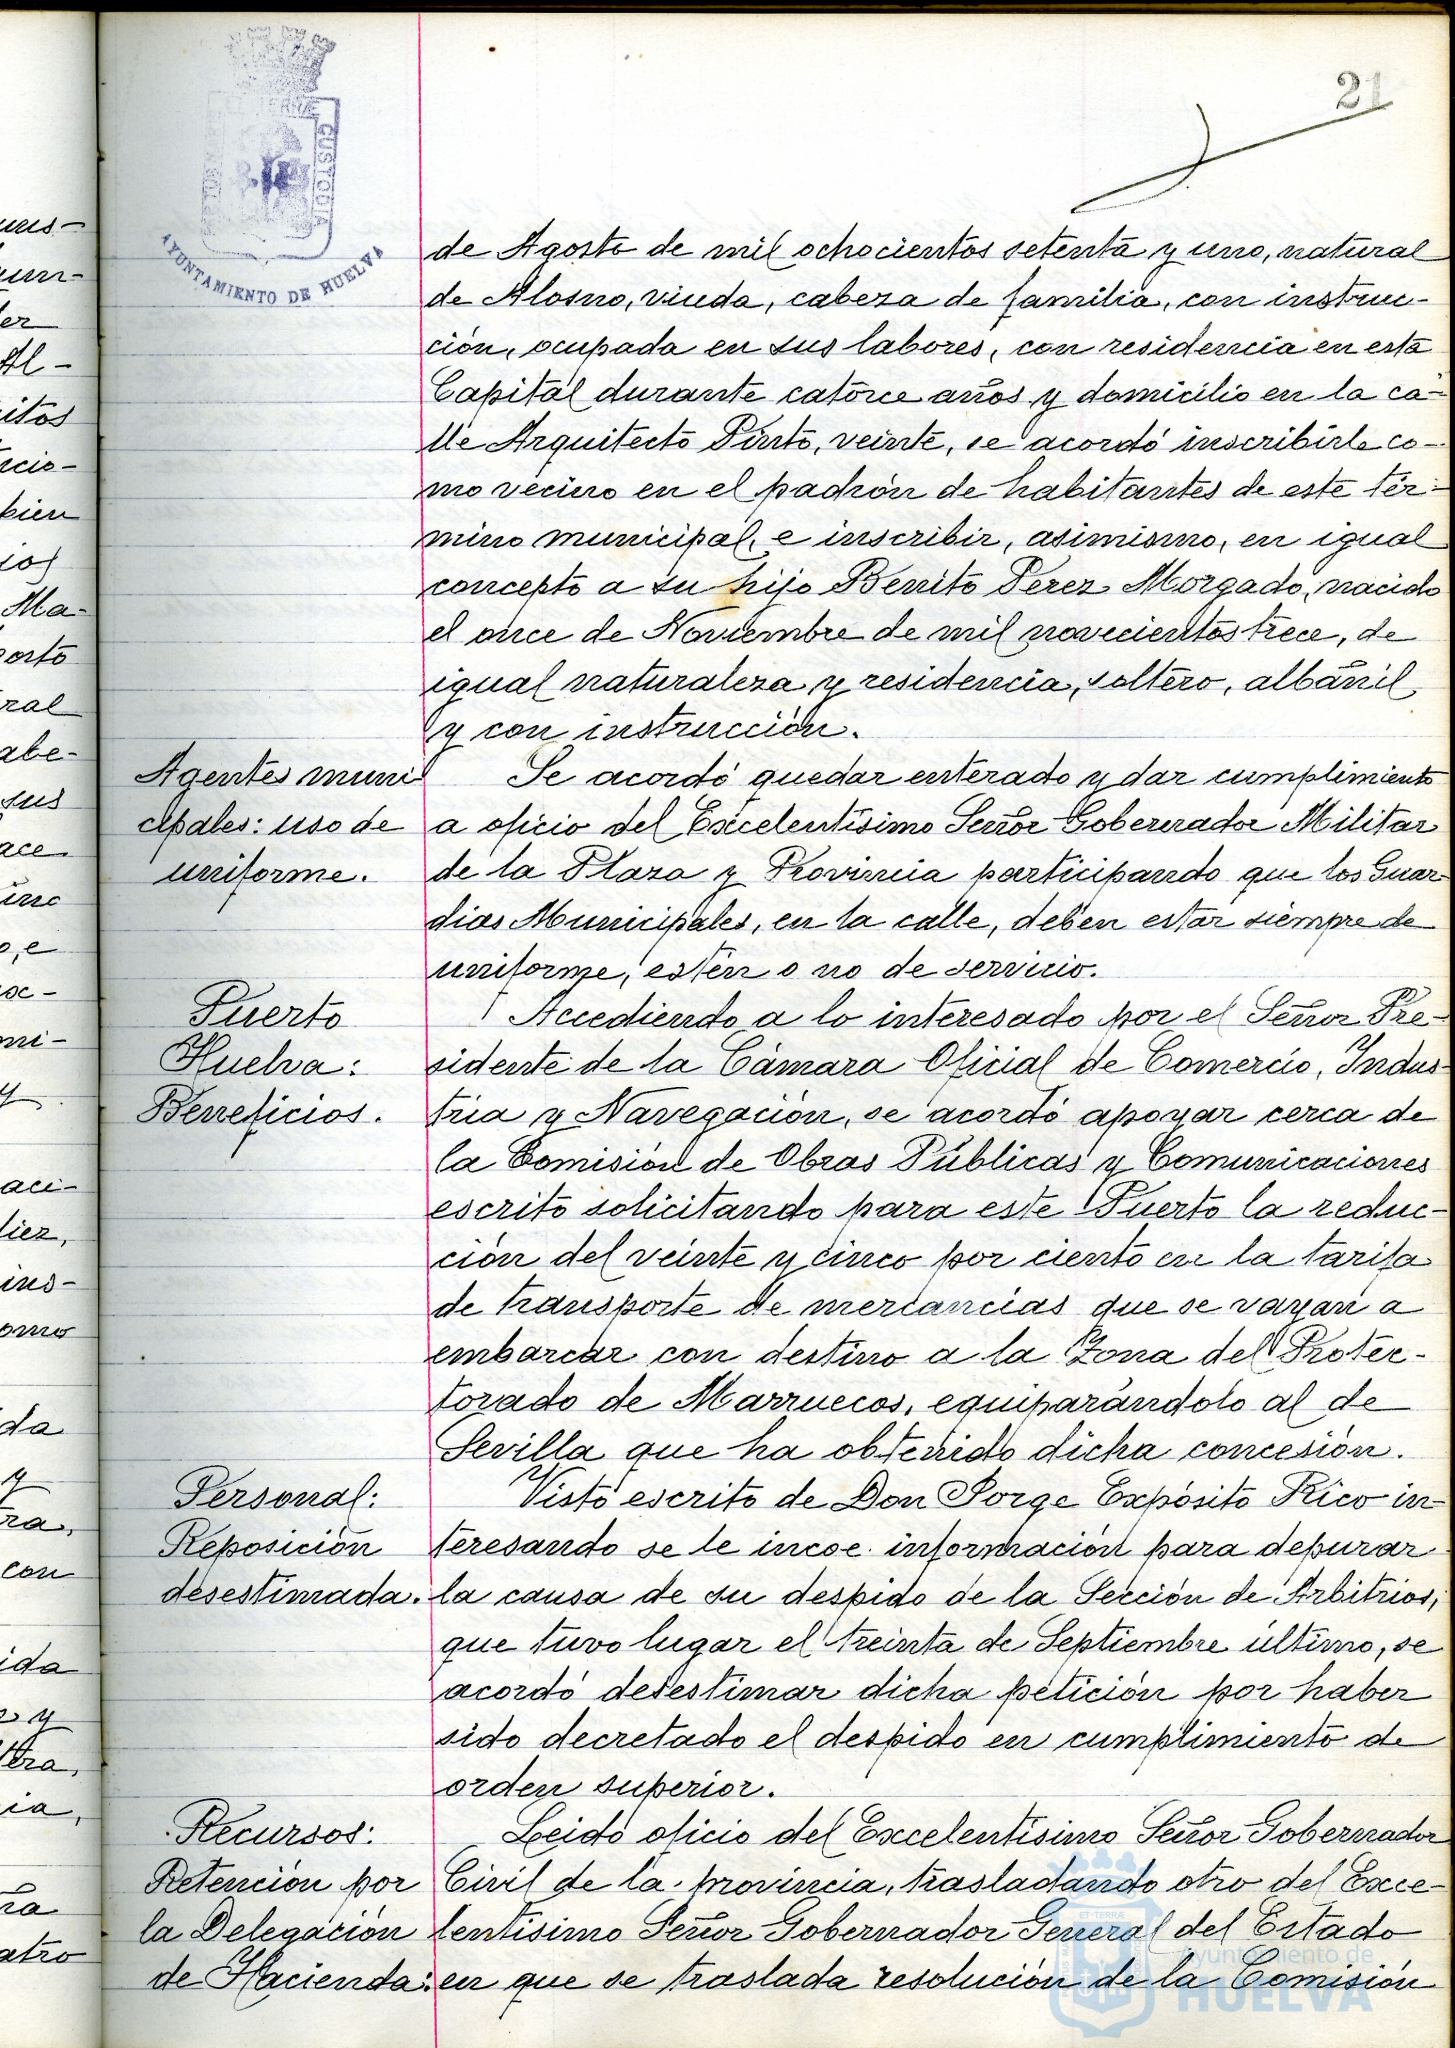 21
AYUNTAMIENTO DE HUELVA
CUSTODIA
de Agosto de mil ochocientos setenta y uno, natural
de Alosno, viuda, cabeza de familia, con instruc-
ción, ocupada en sus labores, con residencia en esta
Capital durante catorce años y domicilio en la ca-
lle Arquitecto Pinto, veinte, se acordó inscribirle co-
mo vecino en el padrón de habitantes de este tér-
mino municipal, e inscribir, asimismo, en igual
concepto a su hijo Benito Perez Morgado, nacido
el once de Noviembre de mil novecientos trece, de
igual naturaleza y residencia, soltero, albañil,
y con instrucción.
Agentes muni
cipales: uso de
uniforme.
Se acordó quedar enterado y dar cumplimiento
a oficio del Excelentísimo Señor Gobernador Militar
de la Plaza y Provincia participando que los Guar-
dias Municipales, en la calle, deben estar siempre de
uniforme, estén o no de servicio.
Puerto
Huelva:
Beneficios.
Accediendo a lo interesado por el Señor Pre-
sidente de la Cámara Oficial de Comercio, Indus-
tria y Navegación, se acordó apoyar cerca de
la Comisión de Obras Públicas y Comunicaciones
escrito solicitando para este Puerto la reduc-
ción del veinte y cinco por ciento en la tarifa
de transporte de mercancias que se vayan a
embarcar con destino a la Zona del Protec-
torado de Marruecos, equiparándolo al de
Sevilla que ha obtenido dicha concesión.
Personal:
Reposición
desestimada.
Visto escrito de Don Jorge Expósito Rico in-
teresando se le incoe información para depurar
la causa de su despido de la Sección de Arbitrios,
que tuvo lugar el treinta de Septiembre último, se
acordó desestimar dicha petición por haber
sido decretado el despido en cumplimiento de
orden superior.
Recursos:
Retención por
la Delegación
de Hacienda:
Leido oficio del Excelentísimo Señor Gobernador
Civil de la provincia, trasladando otro del Exce-
lentísimo Señor Gobernador General del Estado
en que se traslada resolución de la Comisión
Ayuntamiento de
HUELVA